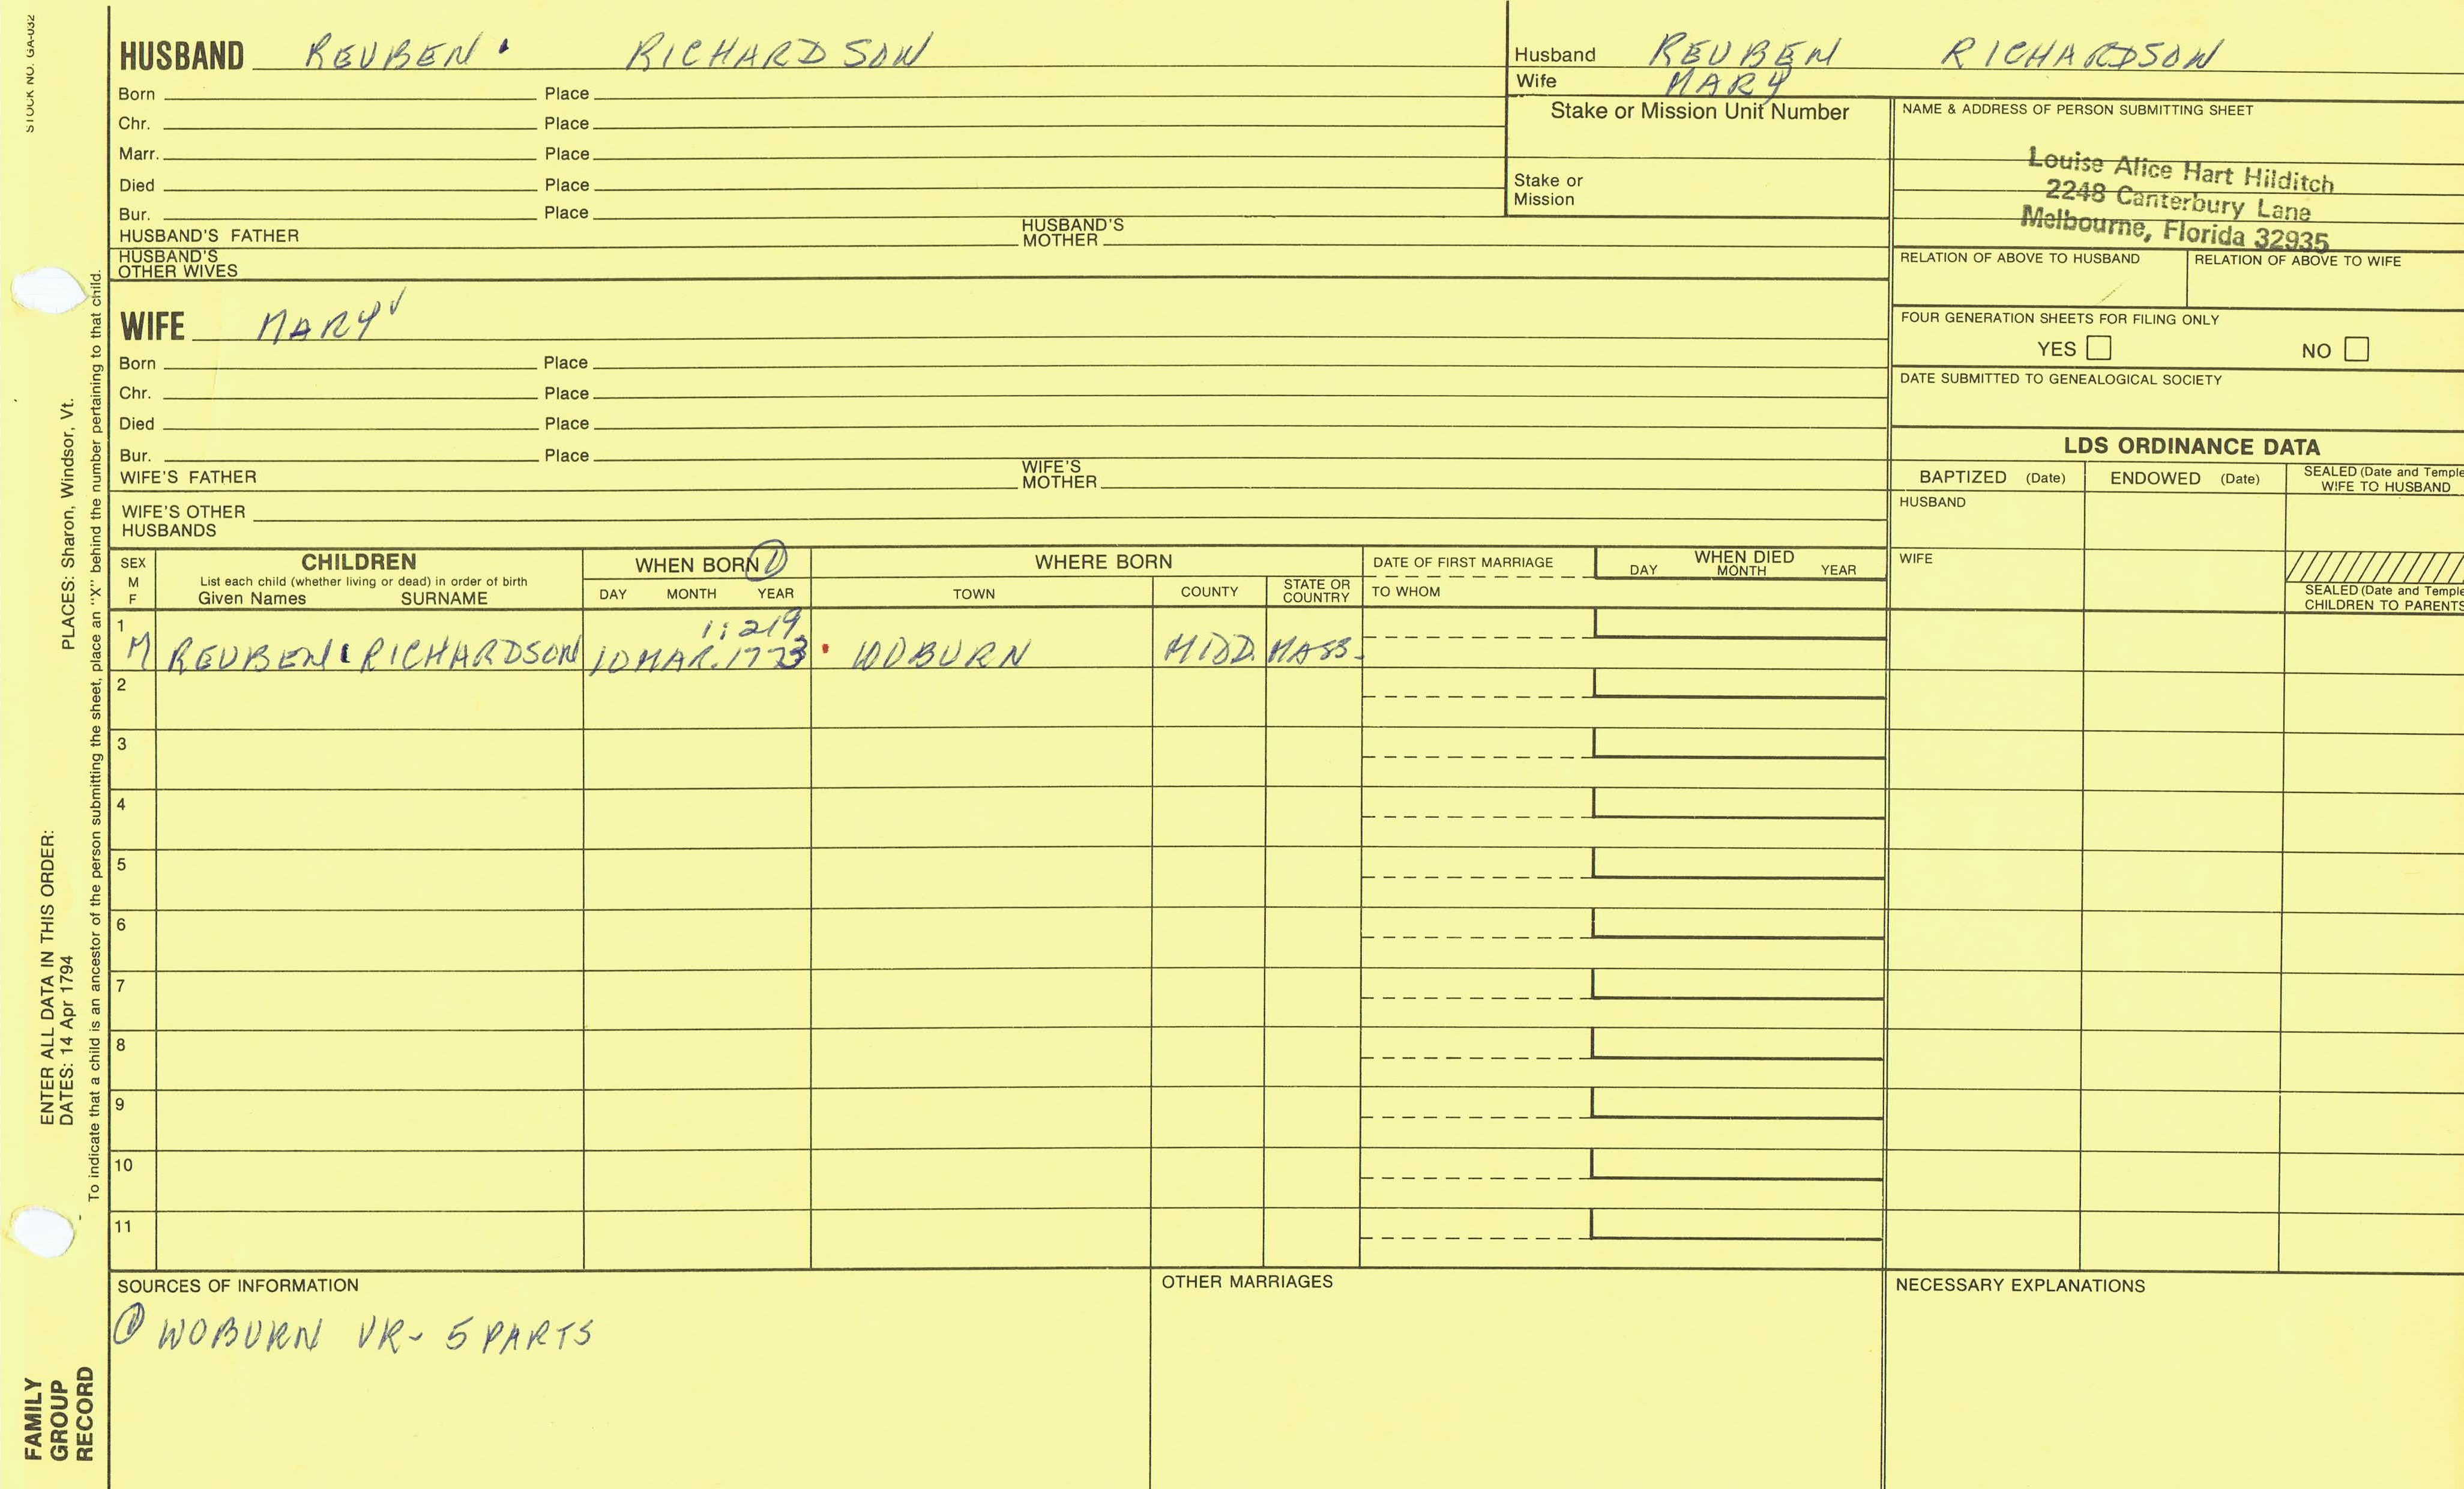 STOCK NO. GA-032
HUSBAND REUBEN RICHARDSON
Born Place
Chr. Place
Marr. Place
Died Place
Bur. Place
HUSBAND'S FATHER HUSBAND'S MOTHER
HUSBAND'S OTHER WIVES
WIFE MARY
Born Place
Chr. Place
Died Place
Bur. Place
WIFE'S FATHER WIFE'S MOTHER
WIFE'S OTHER HUSBANDS
Husband REUBEN RICHARDSON
Wife MARY
Stake or Mission Unit Number
Stake or Mission
NAME & ADDRESS OF PERSON SUBMITTING SHEET
Louise Alice Hart Hilditch
2248 Canterbury Lane
Melbourne, Florida 32935
RELATION OF ABOVE TO HUSBAND RELATION OF ABOVE TO WIFE
FOUR GENERATION SHEETS FOR FILING ONLY
YES NO
DATE SUBMITTED TO GENEALOGICAL SOCIETY
LDS ORDINANCE DATA
BAPTIZED (Date) ENDOWED (Date) SEALED (Date and Temple WIFE TO HUSBAND
HUSBAND
WIFE
SEALED (Date and Temple CHILDREN TO PARENTS
SEX M F CHILDREN WHEN BORN ① WHERE BORN DATE OF FIRST MARRIAGE WHEN DIED
List each child (whether living or dead) in order of birth
Given Names SURNAME DAY MONTH YEAR TOWN COUNTY STATE OR COUNTRY TO WHOM DAY MONTH YEAR
1:219
1 M REUBEN RICHARDSON 10 MAR. 1773 WOBURN MIDD. MASS.
2
3
4
5
6
7
8
9
10
11
SOURCES OF INFORMATION OTHER MARRIAGES NECESSARY EXPLANATIONS
① WOBURN VR- 5 PARTS
PLACES: Sharon, Windsor, Vt.
ENTER ALL DATA IN THIS ORDER:
DATES: 14 Apr 1794
To indicate that a child is an ancestor of the person submitting the sheet, place an "X" behind the number pertaining to that child.
FAMILY
GROUP
RECORD